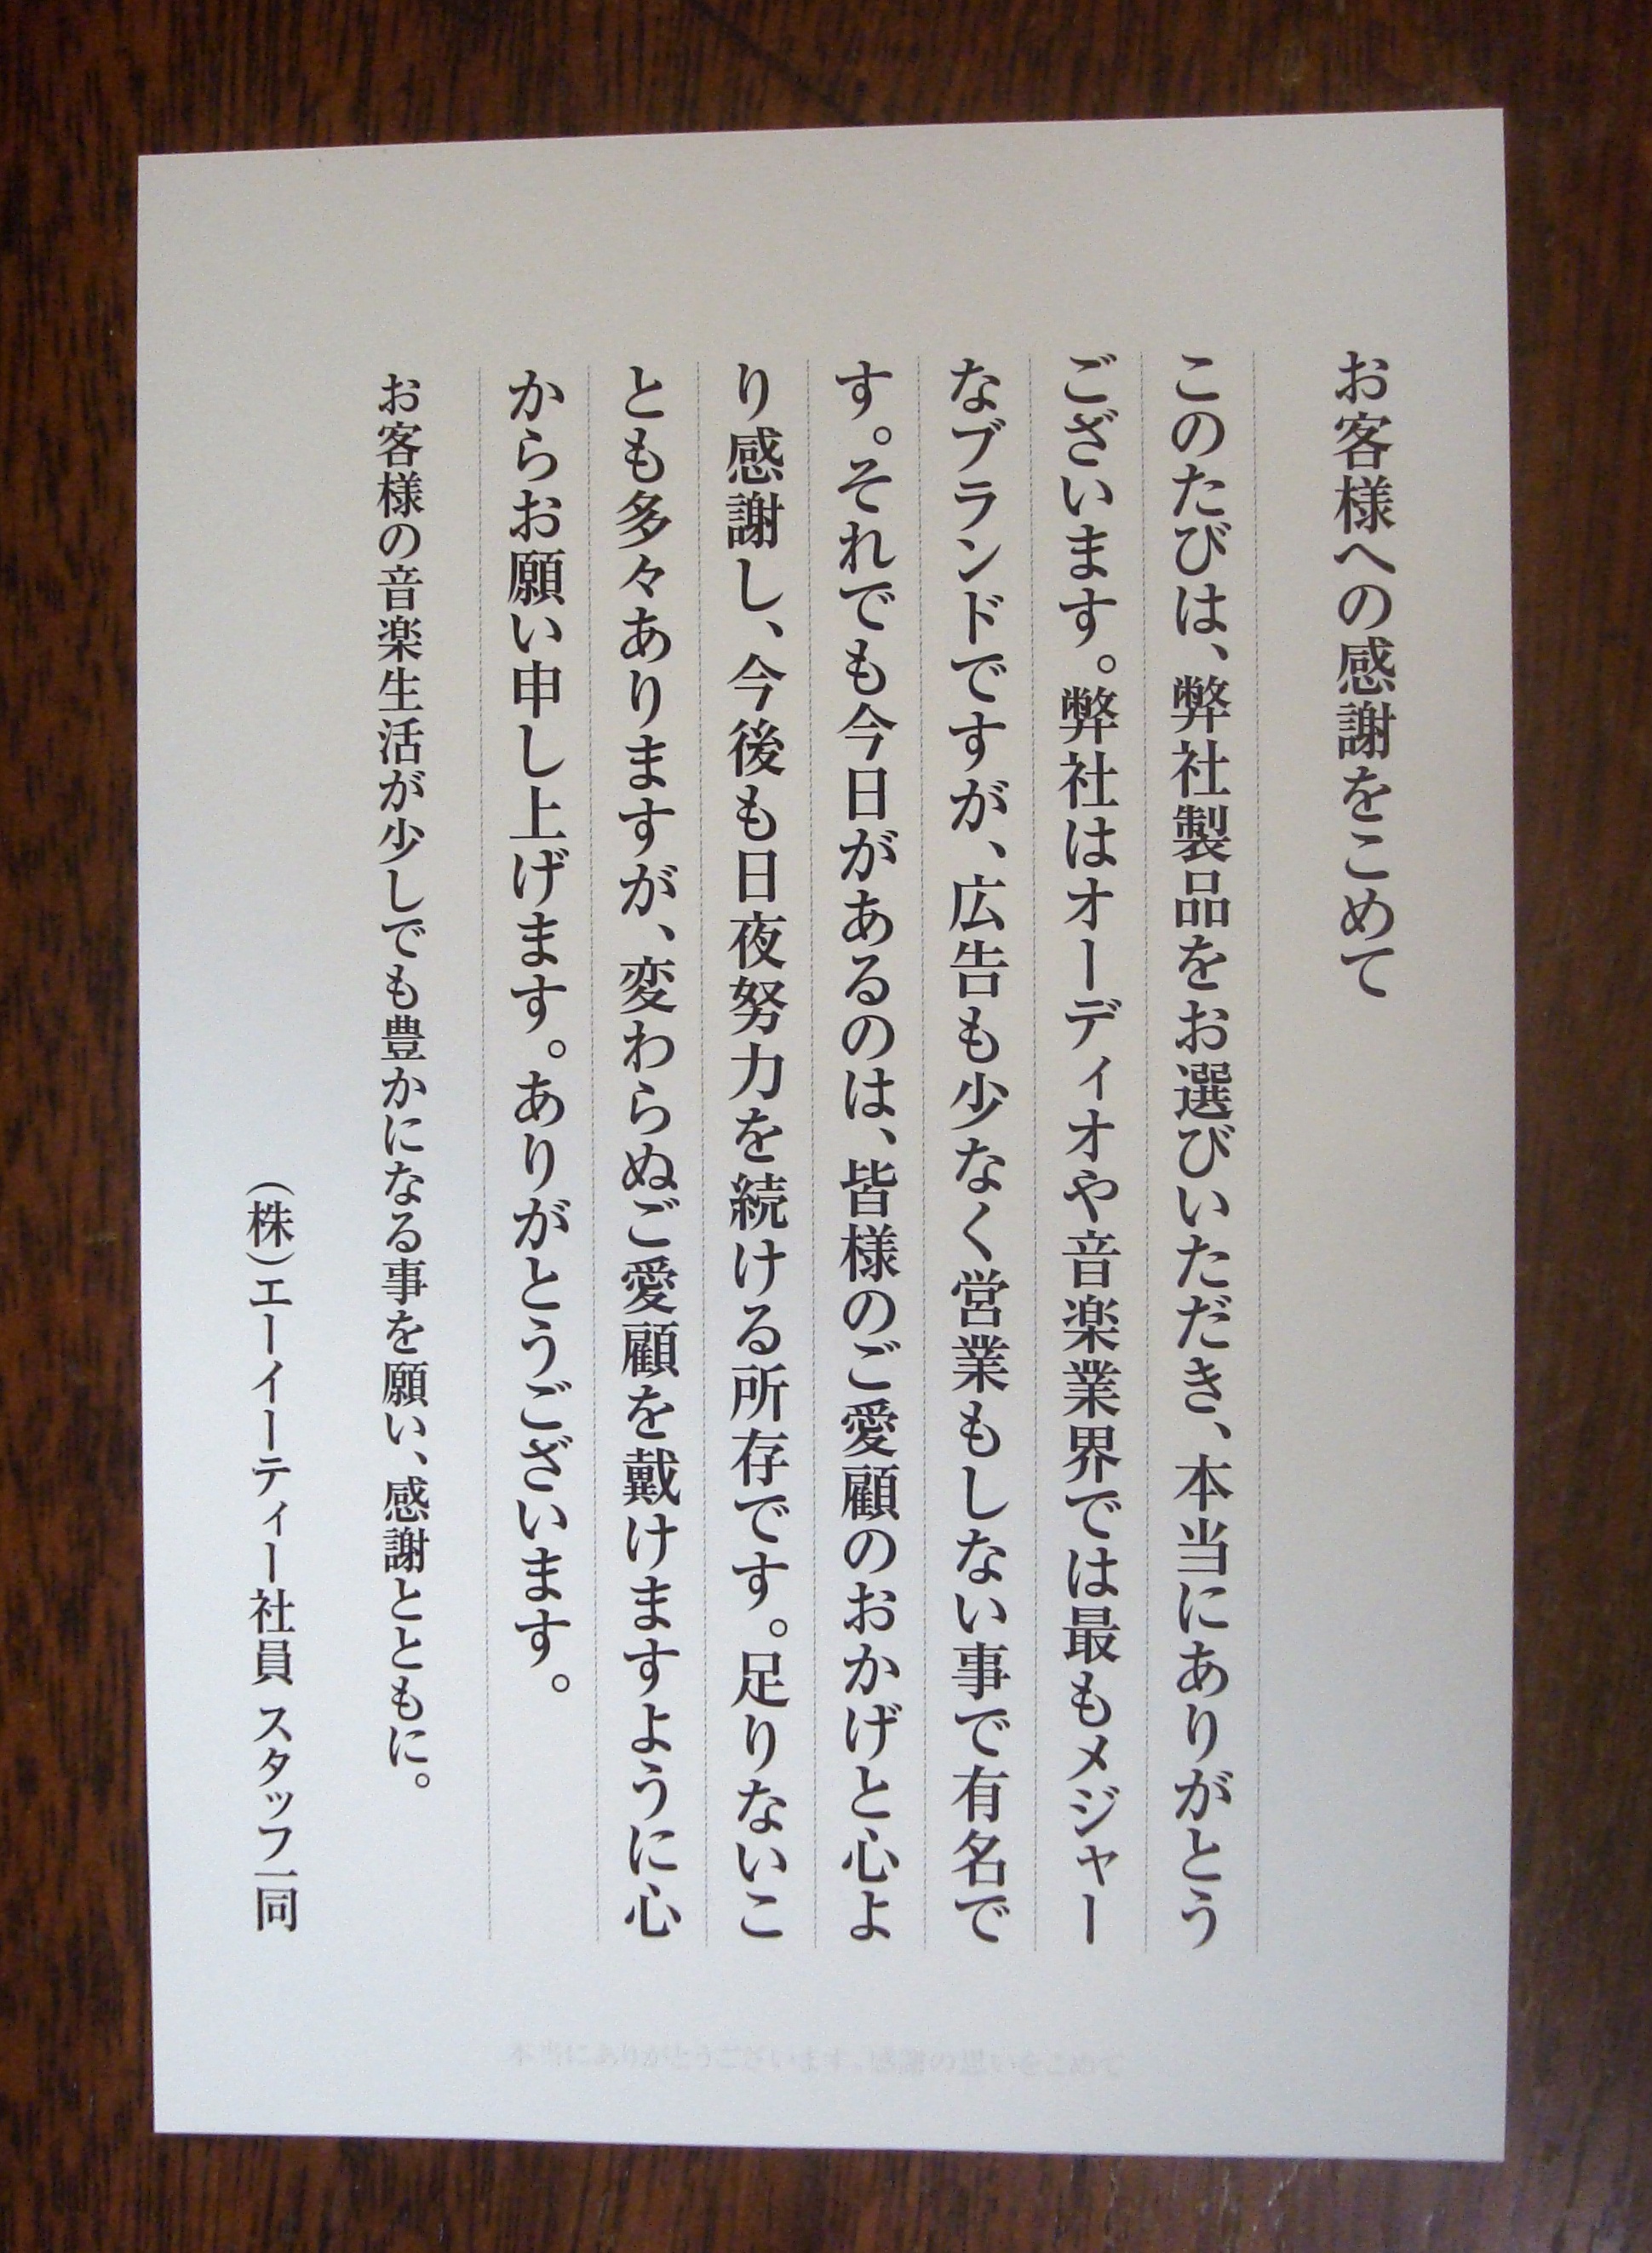 お客様への感謝をこめて
このたびは、弊社製品をお選びいただき、本当にありがとう
ございます。弊社はオーディオや音楽業界では最もメジャー
なブランドですが、広告も少なく営業もしない事で有名で
す。それでも今日があるのは、皆様のご愛顧のおかげと心よ
り感謝し、今後も日夜努力を続ける所存です。足りないこ
とも多々ありますが、変わらぬご愛顧を戴けますように心
からお願い申し上げます。ありがとうございます。
お客様の音楽生活が少しでも豊かになる事を願い、感謝とともに。
(株)エーイーティー社員 スタッフ一同
本当にありがとうございます。感謝の思いをこめて